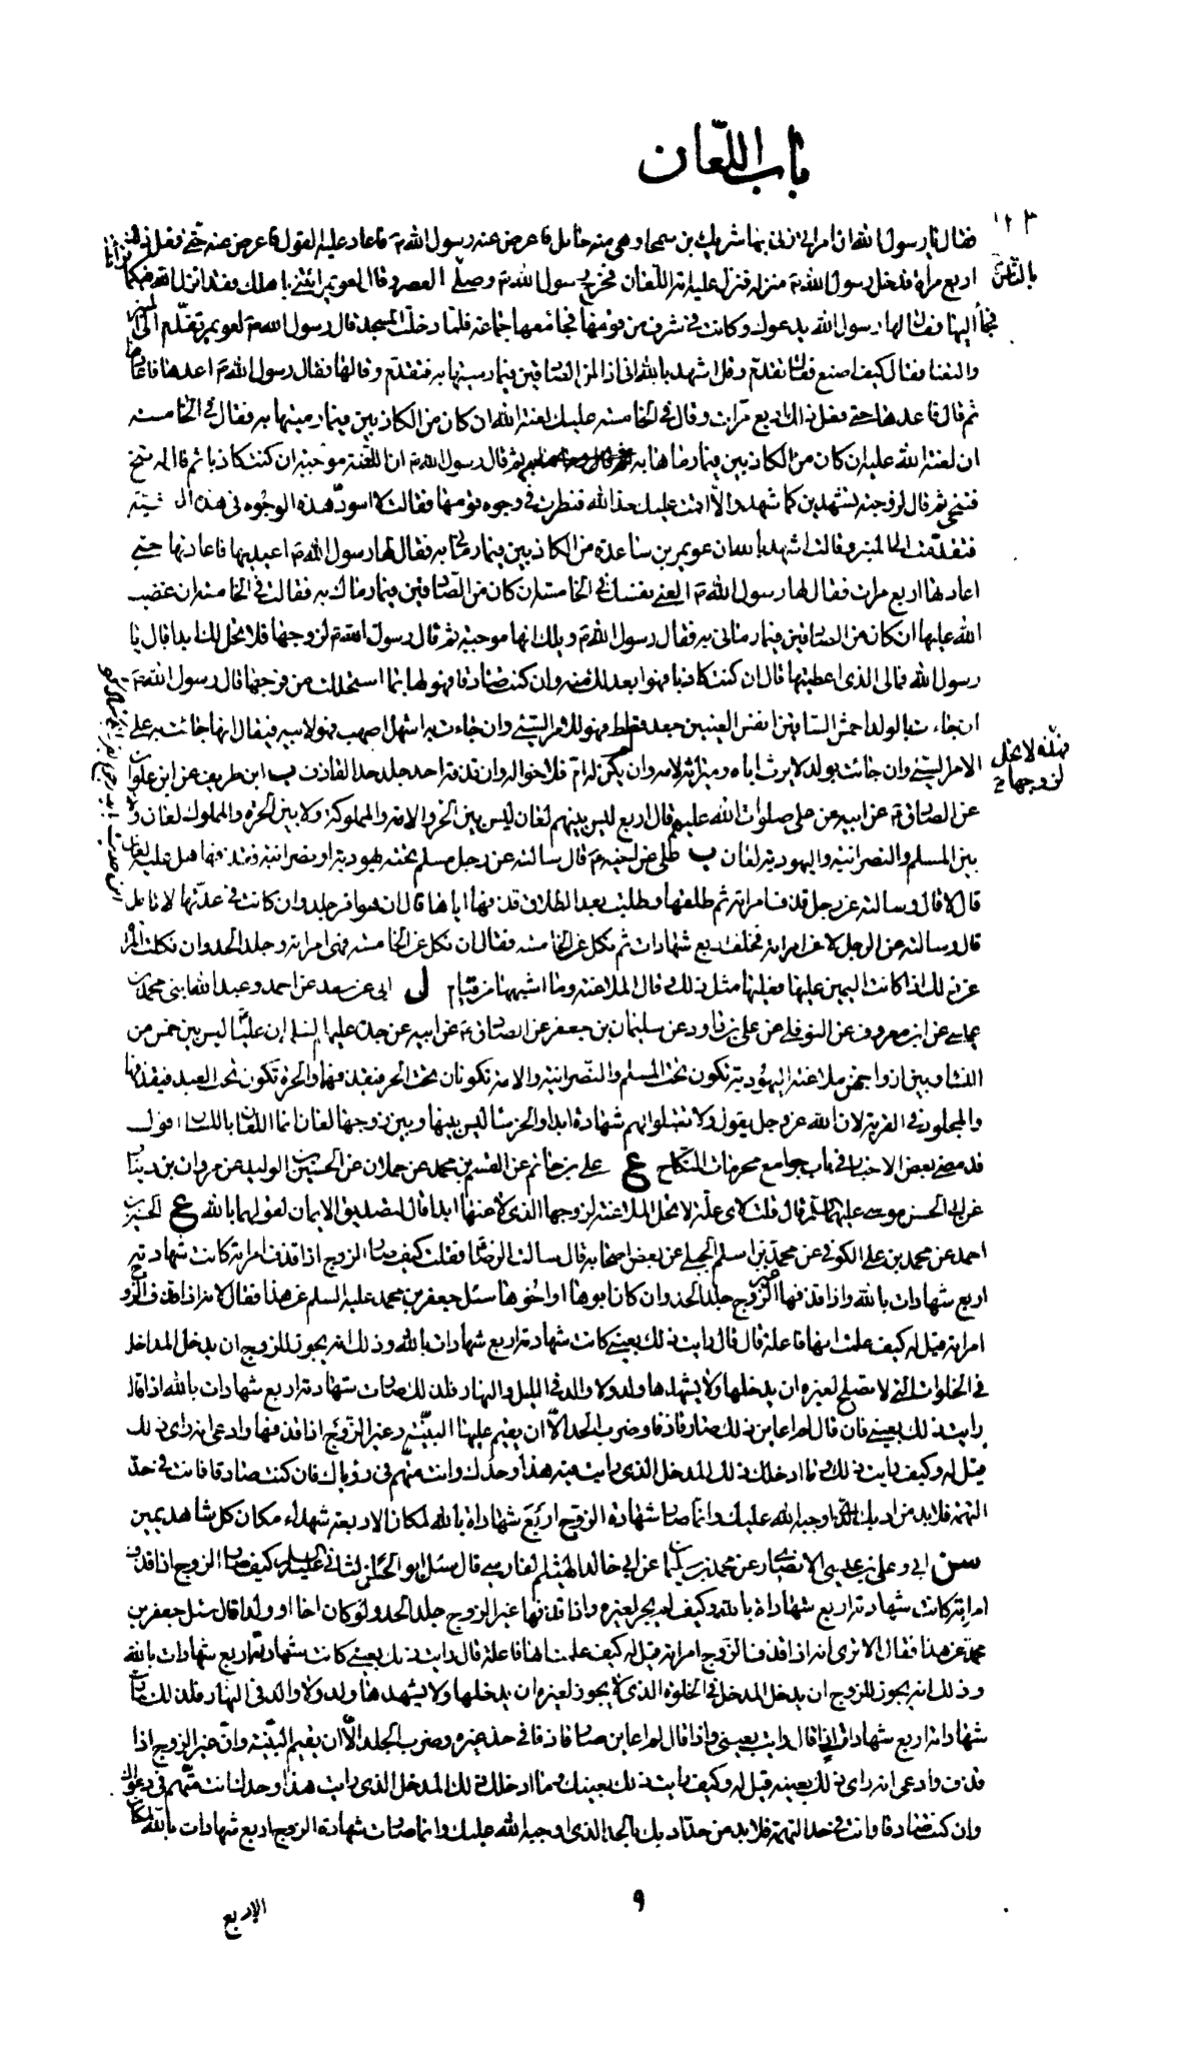 باب اللعان
١٢٣
فقال يا رسول الله ان امراتى زنى بها شريك بن سمحا وهى منه حامل فاعرض عنه رسول الله ص فاعاد عليه القول فاعرض عنه حتى فعل ذلك
اربع مراة فدخل رسول الله ص منزله فنزل عليه اية اللعان فخرج رسول الله ص وصلى العصر وقال لعويمر ايتنى باهلك فقد انزل الله فيكما
بالناس
فجا اليها فقال لها رسول الله يدعوك وكانت فى شرف من قومها فجا معها جماعة فلما دخلت المسجد قال رسول الله ص لعويمر تقدم الى المنبر
والتعنا فقال كيف اصنع فقال تقدم وقل اشهد بالله انى اذا لمن الصادقين فيما رميتها به فتقدم وقالها فقال رسول الله ص اعدها فاعادها
ثم قال فاعدها حتى فعل ذلك اربع مرات وقال فى الخامسة عليك لعنة الله ان كان من الكاذبين فيما رميتها به فقال فى الخامسة
ان لعنة الله عليه ان كان من الكاذبين فيما رماها به ثم قال رسول الله ص ان اللعنة موجبة ان كنت كاذبا ثم قال له تنح
فتنحى ثم قال لزوجته تشهدين كما شهد والا اقمت عليك حد الله فنظرت فى وجوه قومها فقالت لا اسود هذه الوجوه فى هذه العشية
فتقدمت الى المنبر وقالت اشهد بالله ان عويمر بن ساعدة من الكاذبين فيما رمانى به فقال لها رسول الله ص اعيديها فاعادتها حتى
اعادتها اربع مرات فقال لها رسول الله ص العنى نفسك فى الخامسة ان كان من الصادقين فيما رماك به فقالت فى الخامسة ان غضب
الله عليها ان كان من الصادقين فيما رمانى به فقال رسول الله ص ويلك انها موجبة ثم قال رسول الله ص لزوجها فلا تحل لك ابدا قال يا
رسول الله فمالى الذى اعطيتها قال ان كنت كاذبا فهو ابعد لك منه وان كنت صادقا فهو لها بما استحللت من فرجها ثم قال رسول الله ص
ان جاءت بالولد احمش الساقين انفس العينين جعد قطط فهو للامر السيئ وان جاءت به اشهل اصهب فهو لابيه فيقال انها جائت به على
الامر السيئ وان جائت بولد لا يرث اباه وميراثه لامه وان لم يكن له ام فلاخواله وان قذفه احد جلد حد القاذف ب ابن طريف عن ابن علوان
فهذه لا تحل لزوجها
عن الصادق ع عن ابيه عن على صلوات الله عليهم قال اربع ليس بينهم لعان ليس بين الحر والامة والمملوكة ولا بين الحرة والمملوك لعان ولا
بين المسلم والنصرانية واليهودية لعان ب على عن اخيه ع قال سالته عن رجل مسلم تحته يهودية او نصرانية قذفها هل عليه لعان
قال لا قال وسالته عن رجل قذف امراته ثم طلقها وطلبت بعد الطلاق قذفه اياها قال ان هو اقر جلد وان كانت فى عدتها لاعنها
قال وسالته عن الرجل لاعن امراته فحلف اربع شهادات ثم نكل عن الخامسة فقال ان نكل عن الخامسة فهى امراته وجلد الحد وان نكلت المراة
عن ذلك اذا كانت اليمين عليها فعليها مثل ذلك قال الملاعنة وما اشبهها من قيام ل ابى عن سعد عن احمد وعبد الله ابنى محمد بن
عيسى عن ابن معروف عن النوفلى عن على بن داود عن سليمان بن جعفر عن الصادق ع عن ابيه عن جده عليهم السلم ان عليا ليس بين خمس من
النساء وبين ازواجهن ملاعنة اليهودية تكون تحت المسلم والنصرانية والامة تكونان تحت الحر فيقذفهما والحرة تكون تحت العبد فيقذفها
والمجلود فى الفرية لان الله عز وجل يقول ولا تقبلوا لهم شهادة ابدا والخرسا ليس بينها وبين زوجها لعان انما اللعان باللسان اقول
قد مضى بعض الاخبار فى باب جوامع محرمات النكاح ع على بن حاتم عن القسم بن محمد عن حمدان عن الحسين بن الوليد عن مروان بن دينار
عن ابى الحسن موسى عليه السلم قال قلت لاى علة لا تحل الملاعنة لزوجها الذى لاعنها ابدا قال لتصديق الايمان لقولهما بالله ع الحسين بن
احمد عن محمد بن على الكوفى عن محمد بن اسلم الجبلى عن بعض اصحابه قال سالت الرضا فقلت كيف صار الزوج اذا قذف امراته كانت شهادته
اربع شهادات بالله واذا قذفها غير الزوج جلد الحد وان كان ابوها او اخوها سئل جعفر بن محمد عليه السلم عن هذا فقال لانه اذا قذف الزوج
امراته قيل له كيف علمت انها فاعلة قال قال رايت ذلك بعينى كانت شهادته اربع شهادات بالله وذلك انه يجوز للزوج ان يدخل المداخل
فى الخلوات التى لا تصلح لغيره ان يدخلها ولا يشهدها ولد ولا والد فى الليل والنهار فلذلك صارت شهادته اربع شهادات بالله اذا قال
رايت ذلك بعينى فان قال لم اعاين ذلك صار قاذفا وضرب الحد الا ان يقيم عليها البينة وغير الزوج اذا قذفها وادعى انه راى ذلك
قيل له وكيف رايت ذلك وما ادخلك ذلك المدخل الذى رايت فيه هذا وحدك وانت متهم فى رؤياك فان كنت صادقا فانت فى حد
التهمة فلا بد من ادبك الذى اوجبه الله عليك وانما صار شهادة الزوج اربع شهاداة بالله لمكان الاربعة شهداء مكان كل شاهد يمين
سن ابى وعلى بن عيسى الانصارى عن محمد بن سليمان عن ابى خالد الهيثم الفارسى قال سئل ابو الحسن الثانى عليه السلم كيف صار الزوج اذا قذف
امراته كانت شهادته اربع شهاداة بالله وكيف لم يجز لغيره واذا قذفها غير الزوج جلد الحد ولو كان اخا او ولدا قال سئل جعفر بن
محمد عن هذا فقال الا ترى انه اذا قذف الزوج امراته قيل له كيف علمت انها فاعلة قال رايت ذلك بعينى كانت شهادته اربع شهادات بالله
وذلك انه يجوز للزوج ان يدخل المدخل فى الخلوة الذى لا يجوز لغيره ان يدخلها ولا يشهدها ولد ولا والد فى النهار فلذلك صارت
شهادته اربع شهادات اذا قال رايت بعينى واذا قال لم اعاين صار قاذفا فى حد غيره وضرب الجلد الا ان يقيم البينة وان غير الزوج اذا
قذف وادعى انه راى ذلك بعينه قيل له وكيف رايت ذلك بعينك وما ادخلك ذلك المدخل الذى رايت هذا وحدك انت متهم فى دعواك
وان كنت صادقا وانت فى حد التهمة فلا بد من حد تاديبك بالحد الذى اوجبه الله عليك وانما صارت شهادة الزوج اربع شهادات بالله لمكان
٩
الاربع